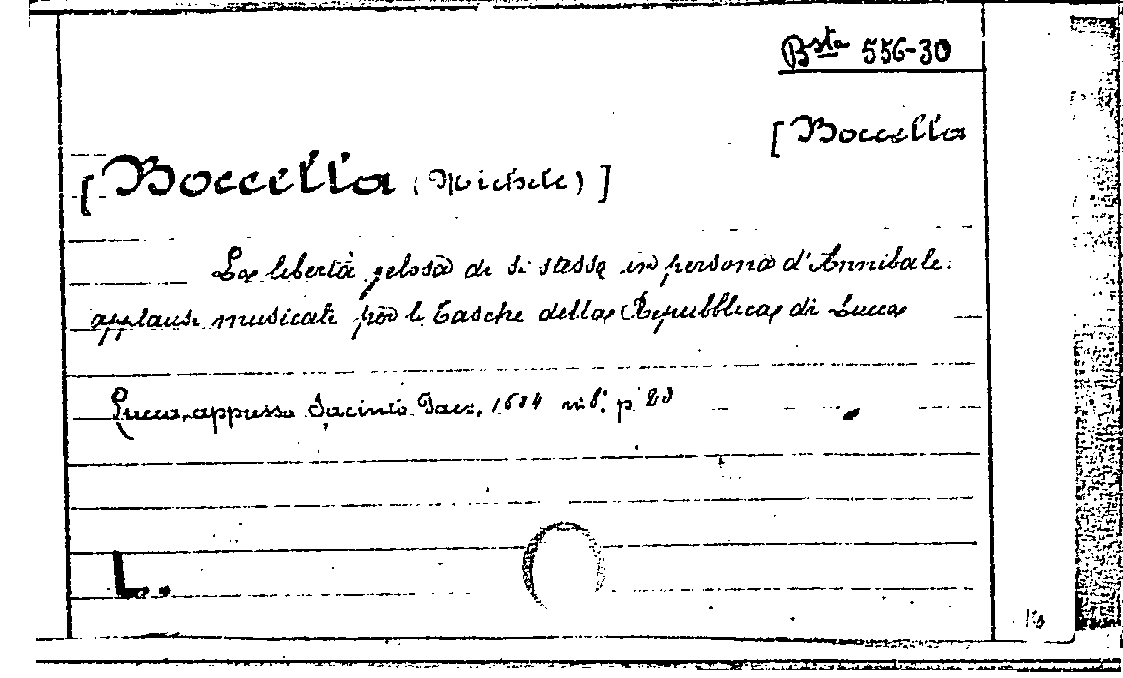 Bsta 556-30
[Boccella
[Boccella (Michele)]
La libertà gelosa di se stessa in persona d'Annibale.
applausi musicali per le Tasche della Repubblica di Lucca
Lucca, appresso Jacinto Paci, 16 in 8°. p 20
L.